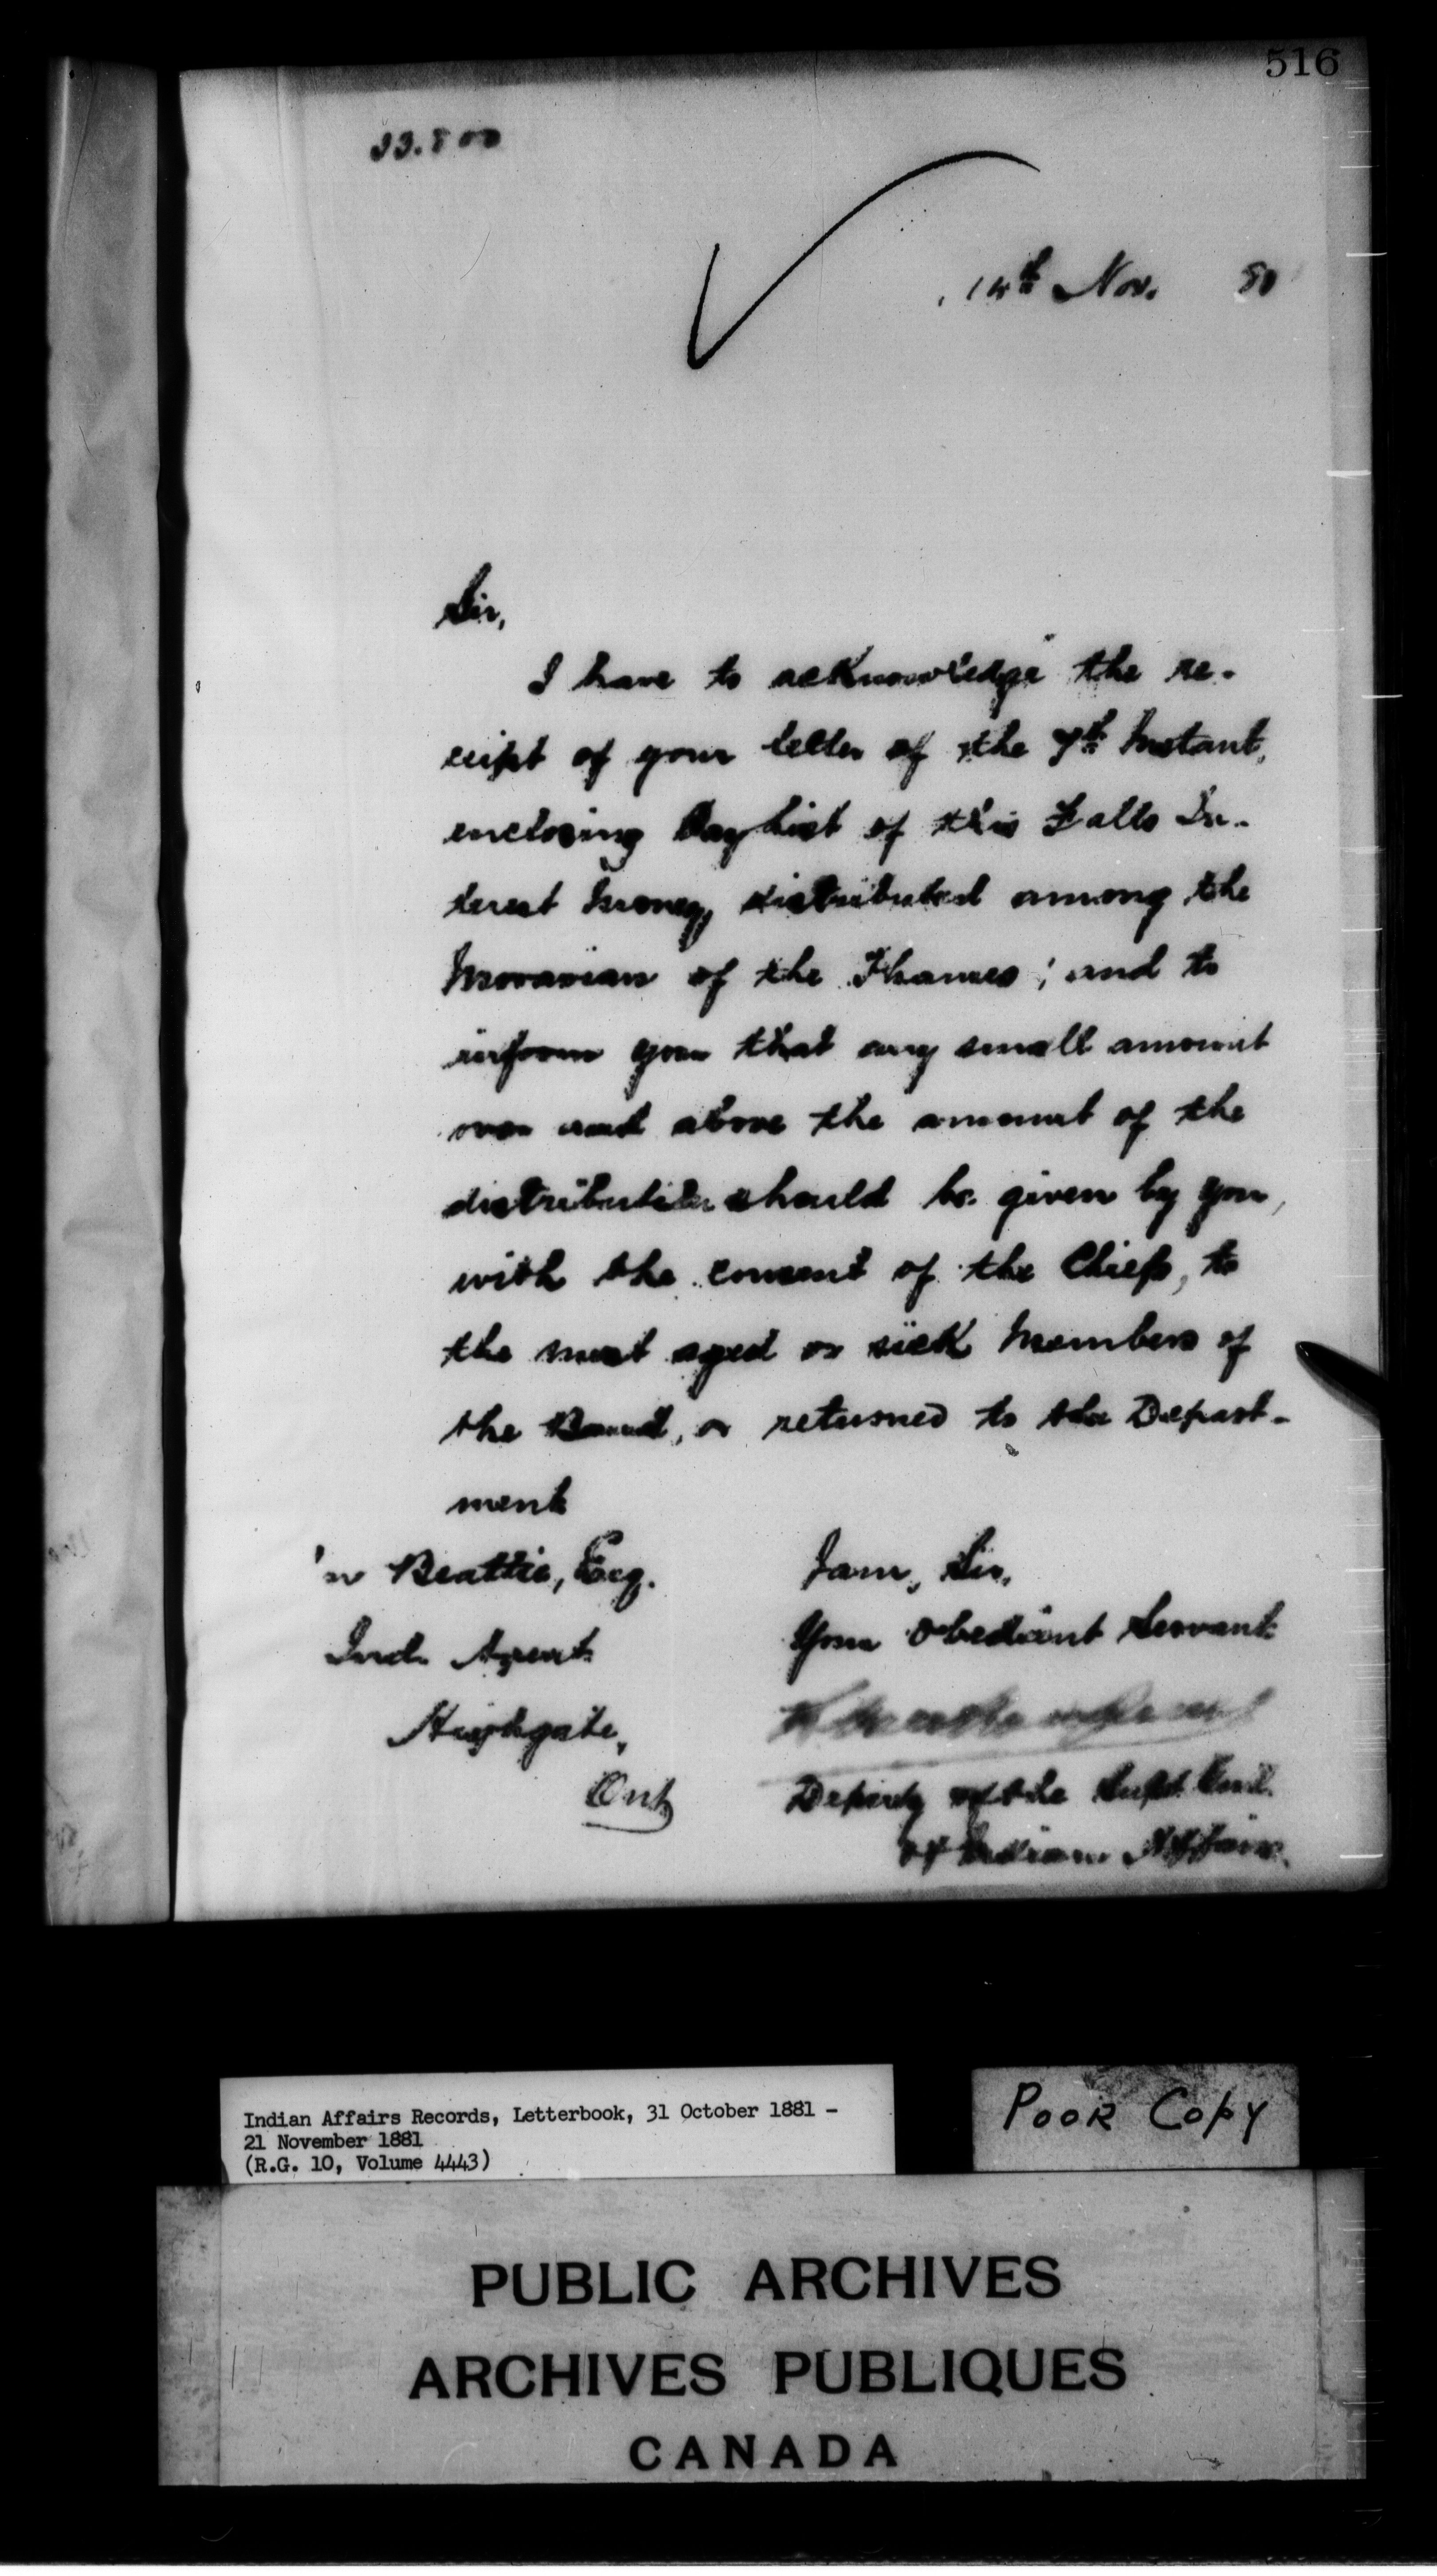 516
33.800
14th Nov. 80
Sir,
I have to acknowledge the re-
ceipt of your letter of the 7th Instant,
enclosing Pay List of this Falls In-
terest Money, distributed among the
Moravian of the Thames; and to
inform you that any small amount
over and above the amount of the
distribution should be given by you,
with the consent of the Chiefs, to
the most aged or sick Members of
the Band, or returned to the Depart-
ment
Beattie, Esq.
Ind. Agent
Highgate,
Ont
I am, Sir,
Your obedient Servant
Deputy of the Supt. Genl.
of Indian Affairs.
Indian Affairs Records, Letterbook, 31 October 1881 -
21 November 1881
(R.G. 10, Volume 4443)
POOR COPY
PUBLIC ARCHIVES
ARCHIVES PUBLIQUES
CANADA